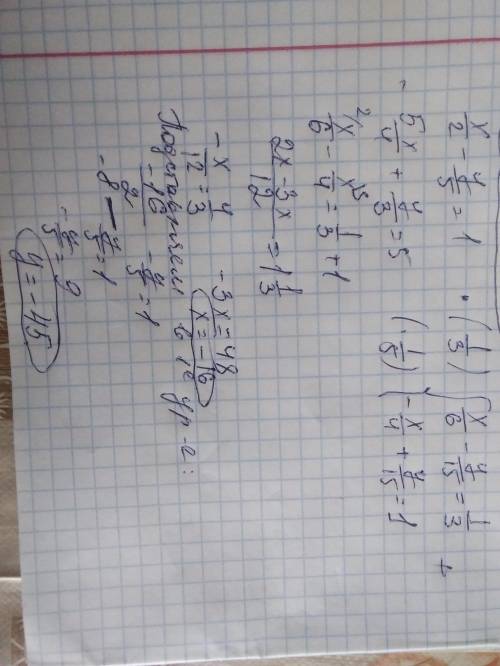 x/2 - y/5 = 1 · (1/3) { x/6 - y/15 = 1/3 +
5x/4 + y/3 = 5 (·1/5) { -x/4 + y/15 = 1
2/ x/6 - x/4 = 1/3 + 1
(2x-3x)/12 = 1 1/3
-x/12 = 4/3 -3x = 48
x = -16
Подставляем в 1е ур-е:
-16/2 - y/5 = 1
-8 - y/5 = 1
-y/5 = 9
y = -45